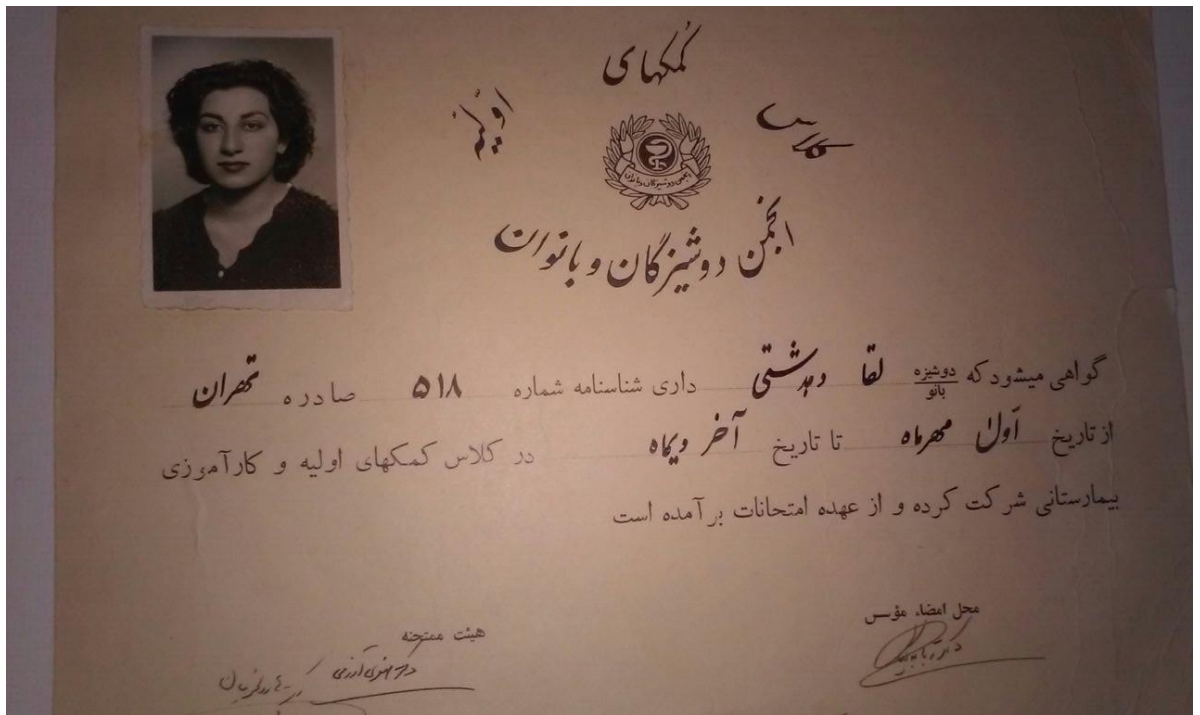 کلاس کمکهای اولیه
انجمن دوشیزگان و بانوان
انجمن دوشیزگان و بانوان
گواهی میشود که دوشیزه لقا داری شناسنامه شماره ۵۱۸ صادره تهران
بانو
از تاریخ اول مهرماه تا تاریخ آخر دیماه در کلاس کمکهای اولیه و کارآموزی
بیمارستانی شرکت کرده و از عهده امتحانات برآمده است
محل امضاء مؤسس
هیئت ممتحنه